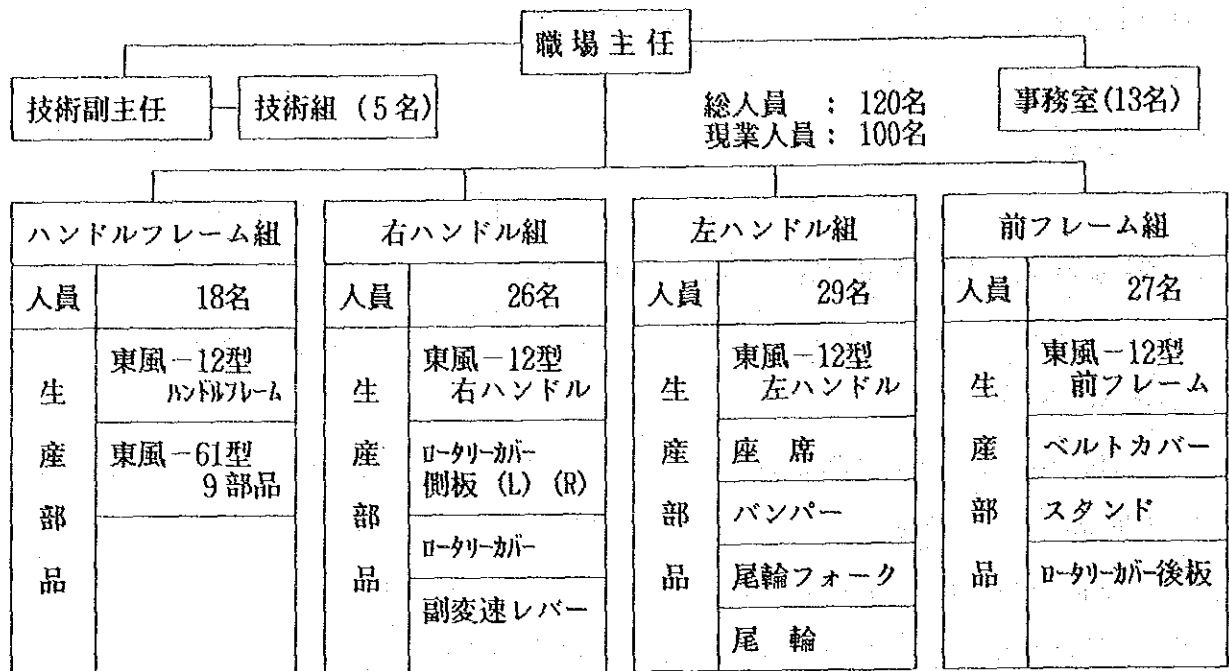 職場主任
技術副主任
技術組 (5名)
総人員 : 120名
現業人員: 100名
事務室(13名)
ハンドルフレーム組
人員 18名
生産部品
東風-12型
ハンドルフレーム
東風-61型
9部品
右ハンドル組
人員 26名
生産部品
東風-12型
右ハンドル
ロータリーカバー
側板 (L) (R)
ロータリーカバー
副変速レバー
左ハンドル組
人員 29名
生産部品
東風-12型
左ハンドル
座席
バンパー
尾輪フォーク
尾輪
前フレーム組
人員 27名
生産部品
東風-12型
前フレーム
ベルトカバー
スタンド
ロータリーカバー後板